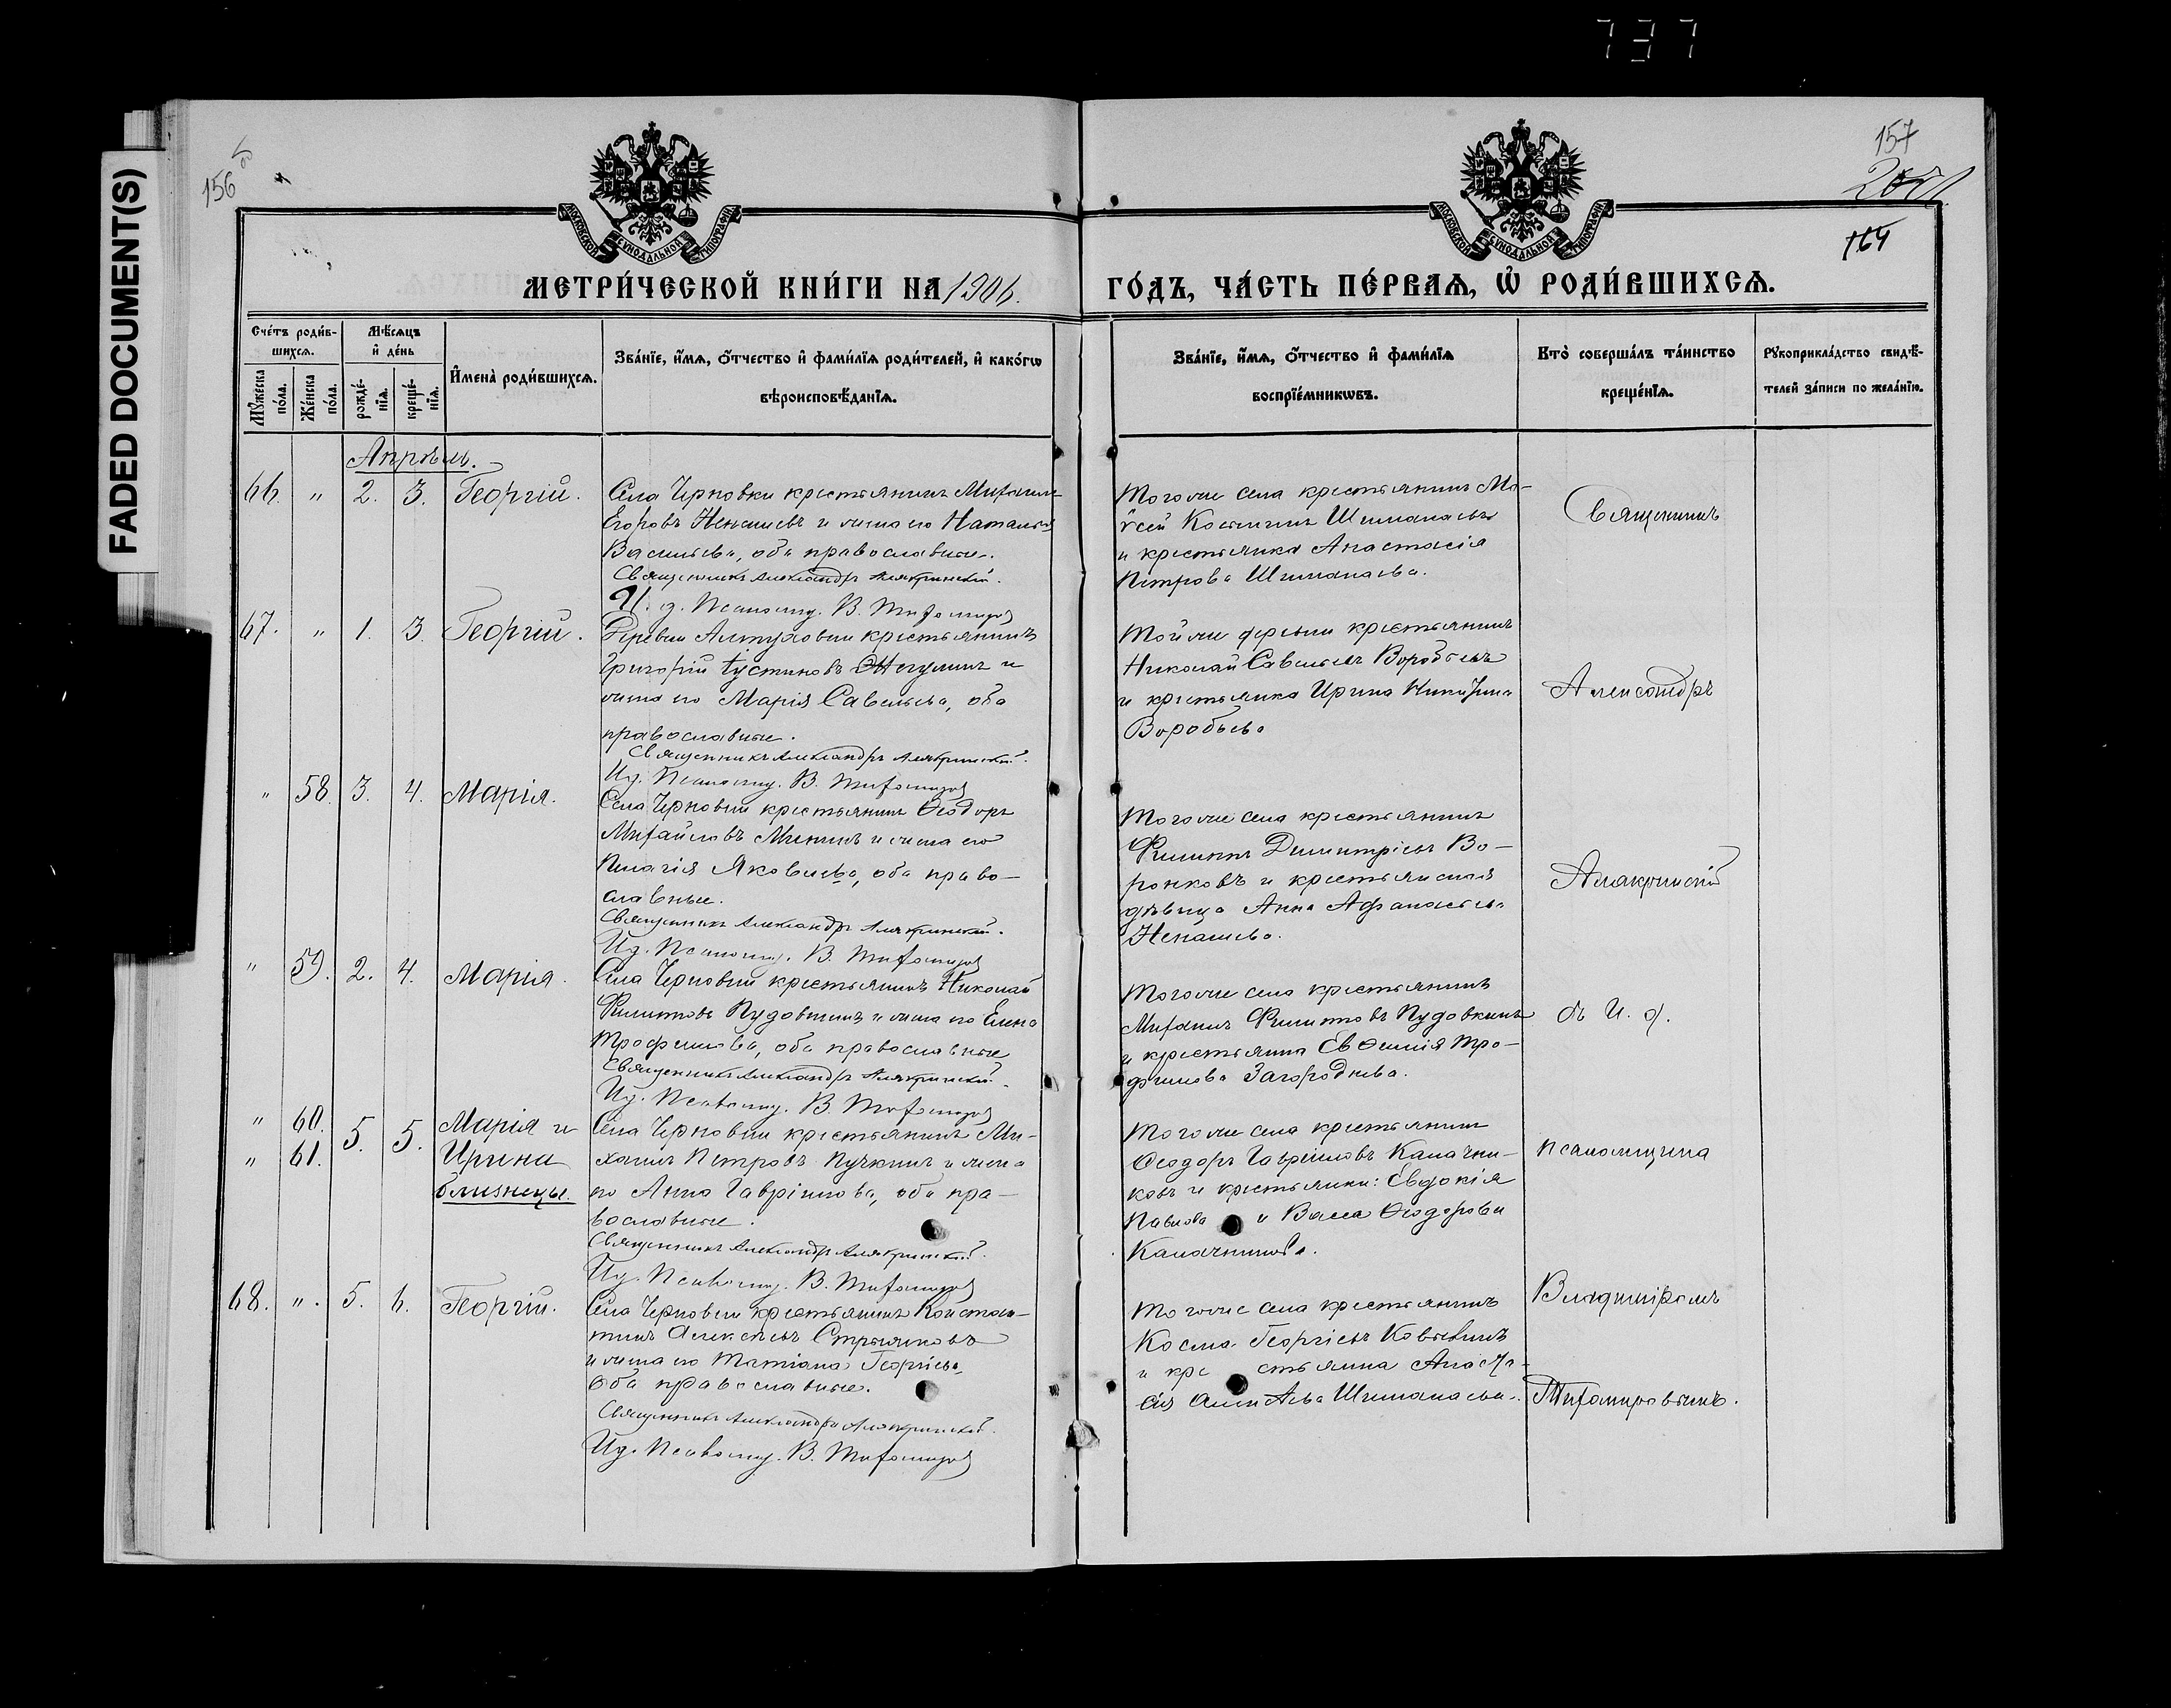 737
FADED DOCUMENT(S)
156
157
164
МОСКОВСКОЙ СѴНОДАЛЬНОЙ ТИПОГРАФІИ
МОСКОВСКОЙ СѴНОДАЛЬНОЙ ТИПОГРАФІИ
МЕТРИ́ЧЕСКОЙ КНИ́ГИ НА 1906.
ГО́ДЪ, ЧА́СТЬ ПЕ́РВАѦ, Ѽ РОДИ́ВШИХСѦ.
Сче́тъ роди́в-
шихсѧ.
Мꙋ́жеска по́ла.
Же́нска по́ла.
Мѣ́сѧцъ
и҆ де́нь
рожде́-
нїѧ.
креще́-
нїѧ.
И҆мена̀ роди́вшихсѧ.
Зва́нїе, и҆́мѧ, ѻ҆́тчество и҆ фами́лїѧ роди́телей, и҆ како́гѡ
вѣроисповѣ́данїѧ.
Зва́нїе, и҆́мѧ, ѻ҆́тчество и҆ фами́лїѧ
воспрїе́мникѡвъ.
Кто̀ соверша́лъ та́инство
креще́нїѧ.
Рꙋкоприкла́дство свидѣ́-
телей за́писи по жела́нїю.
Апрѣль.
66. " 2. 3. Георгій.
Села Черновки крестьянинъ Михаилъ
Егоровъ Ненашевъ и жена его Наталія
Васильева, оба православные.
Священникъ Александръ Алякринскій.
И. д. Псаломщ. В. Тихомировъ
Того же села крестьянинъ Мо-
ѵсей Шишанаевъ
и крестьянка Анастасія
Петрова Шишанаева.
Священникъ
67. " 1. 3. Георгій.
Деревни Алтуховки крестьянинъ
Григорій Іустиновъ и
жена его Марія Савельева, оба
православные.
Священникъ Александръ Алякринскій.
Ид. Псаломщ. В. Тихомировъ
Той же деревни крестьянинъ
Николай Савельевъ Воробьевъ
и крестьянка Ирина Никитина
Воробьева
Александръ
" 58. 3. 4. Марія.
Села Черновки крестьянинъ Ѳеодоръ
Михайловъ Мининъ и жена его
Пелагія Яковлева, оба право-
славные.
Священникъ Александръ Алякринскій.
Ид. Псаломщ. В. Тихомировъ
Того же села крестьянинъ
Филиппъ Димитріевъ Во-
ронковъ и крестьянская
дѣвица Анна Афанасьева
Ненашева.
Алякринскій
" 59. 2. 4. Марія.
Села Черновки крестьянинъ Николай
Филипповъ Пудовкинъ и жена его Елена
Трофимова, оба православные
Священникъ Александръ Алякринскій.
Ид. Псаломщ. В. Тихомировъ
Того же села крестьянинъ
Михаилъ Филипповъ Пудовкинъ
и крестьянка Евѳимія Тро-
фимова Загороднева.
съ И. д.
" 60. 5. 5. Марія и
" 61. Ирина
близнецы.
Села Черновки крестьянинъ Ми-
хаилъ Петровъ Пучкинъ и жена
его Анна Гавріилова, оба пра-
вославные.
Священникъ Александръ Алякринскій.
Ид. Псаломщ. В. Тихомировъ
Того же села крестьянинъ
Ѳеодоръ Гавріиловъ Калачни-
ковъ и крестьянки: Евдокія
Павлова и Васса Ѳеодорова
Калачникова.
псаломщика
68. " 5. 6. Георгій.
Села Черновки крестьянинъ Констан-
тинъ Алексѣевъ Стрыгиновъ
и жена его Татіана Георгіева,
оба православные.
Священникъ Александръ Алякринскій.
Ид. Псаломщ. В. Тихомировъ
Того же села крестьянинъ
Косма Георгіевъ
и крестьянка Анаста-
сія Алексѣева Шишанаева.
Владиміромъ
Тихомировымъ.